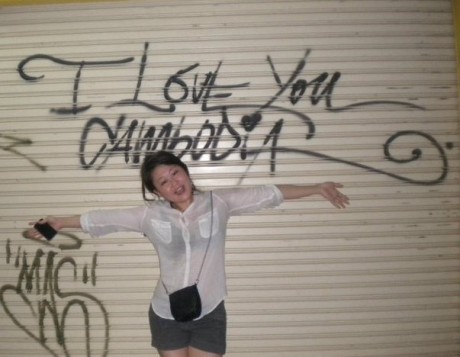 I LOVE You
CAMBODIA
"MAC"